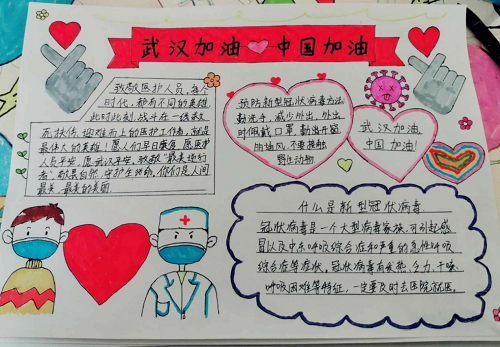 武汉加油 中国加油
致敬医护人员,每个
时代,都有不同的英雄
此时此刻,战斗在一线救
死扶伤,迎难而上的医护工作者,就是
最伟大的英雄!愿人们早日康复,愿医护
人员平安,愿武汉平安,致敬"最美逆行
者"敬畏自然,守护生命,你们是人间
最美,最美的美丽
预防新型冠状病毒方法
勤洗手,减少外出,外出
时佩戴口罩,勤出开窗
通风,不要接触
野生动物
武汉加油,
中国加油!
什么是新型冠状病毒
冠状病毒是一个大型病毒家族,可引起感
冒以及中东呼吸综合症和严重的急性呼吸
综合症等症状,冠状病毒有发热,乏力,干咳,
呼吸困难等特征,一定要及时去医院就医。